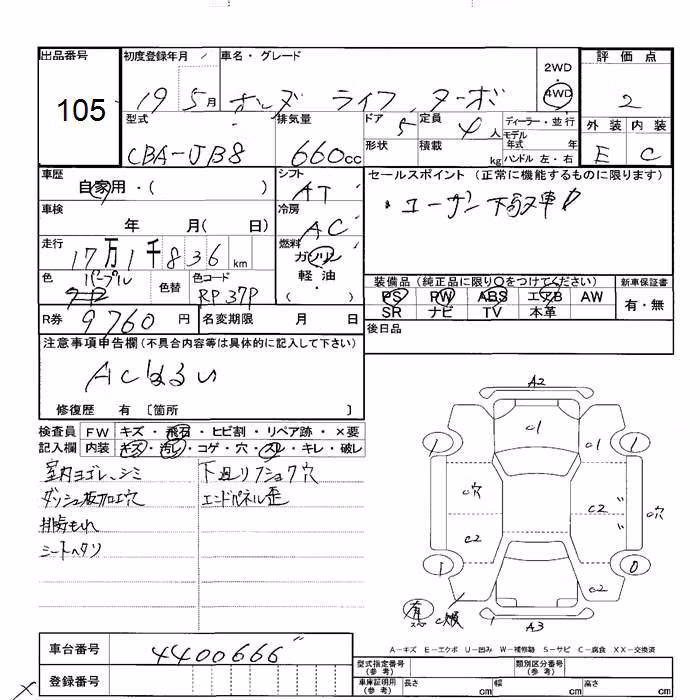 出品番号 初度登録年月 車名・グレード 2WD 4WD 評価点
105 19 5月 ホンダ ライフ ターボ 2
型式 排気量 ドア 5 定員 4人 ディーラー・並行 外装 内装
CBA-JB8 660cc モデル年式 年
形状 積載 kg ハンドル 左・右 E C
車歴 シフト セールスポイント (正常に機能するものに限ります)
自家用・( ) AT
・ユーザー下取車
車検 冷房
年 月( 日) AC
走行 燃料
17万1千836km ガソリン
軽・油
( )
色 パープル 色替 色コード RP37P
装備品 (純正品に限り○をつけてください) 新車保証書
PS PW ABS エアB AW 有・無
SR ナビ TV 本革
R券 9760円 名変期限 月 日
後日品
注意事項申告欄 (不具合内容等は具体的に記入して下さい)
ACわるい
修復歴 有 〔箇所 〕
検査員 FW キズ・飛石・ヒビ割・リペア跡・×要
記入欄 内装 キズ・汚レ・コゲ・穴・スレ・キレ・破レ
室内ヨゴレ、シミ
下廻リ
穴
ダッシュ板加工穴
エンドパネル歪
排気もれ
シートヘタリ
A2
C1
1 C1 1
穴
C2 穴
C2
1 C2 0
A3
A-キズ E-エクボ U-凹み W-補修跡 S-サビ C-腐食 XX-交換済
車台番号 4400666
登録番号
型式指定番号 (参考) 類別区分番号 (参考)
車庫証明用 (参考) 長さ cm 幅 cm 高さ cm